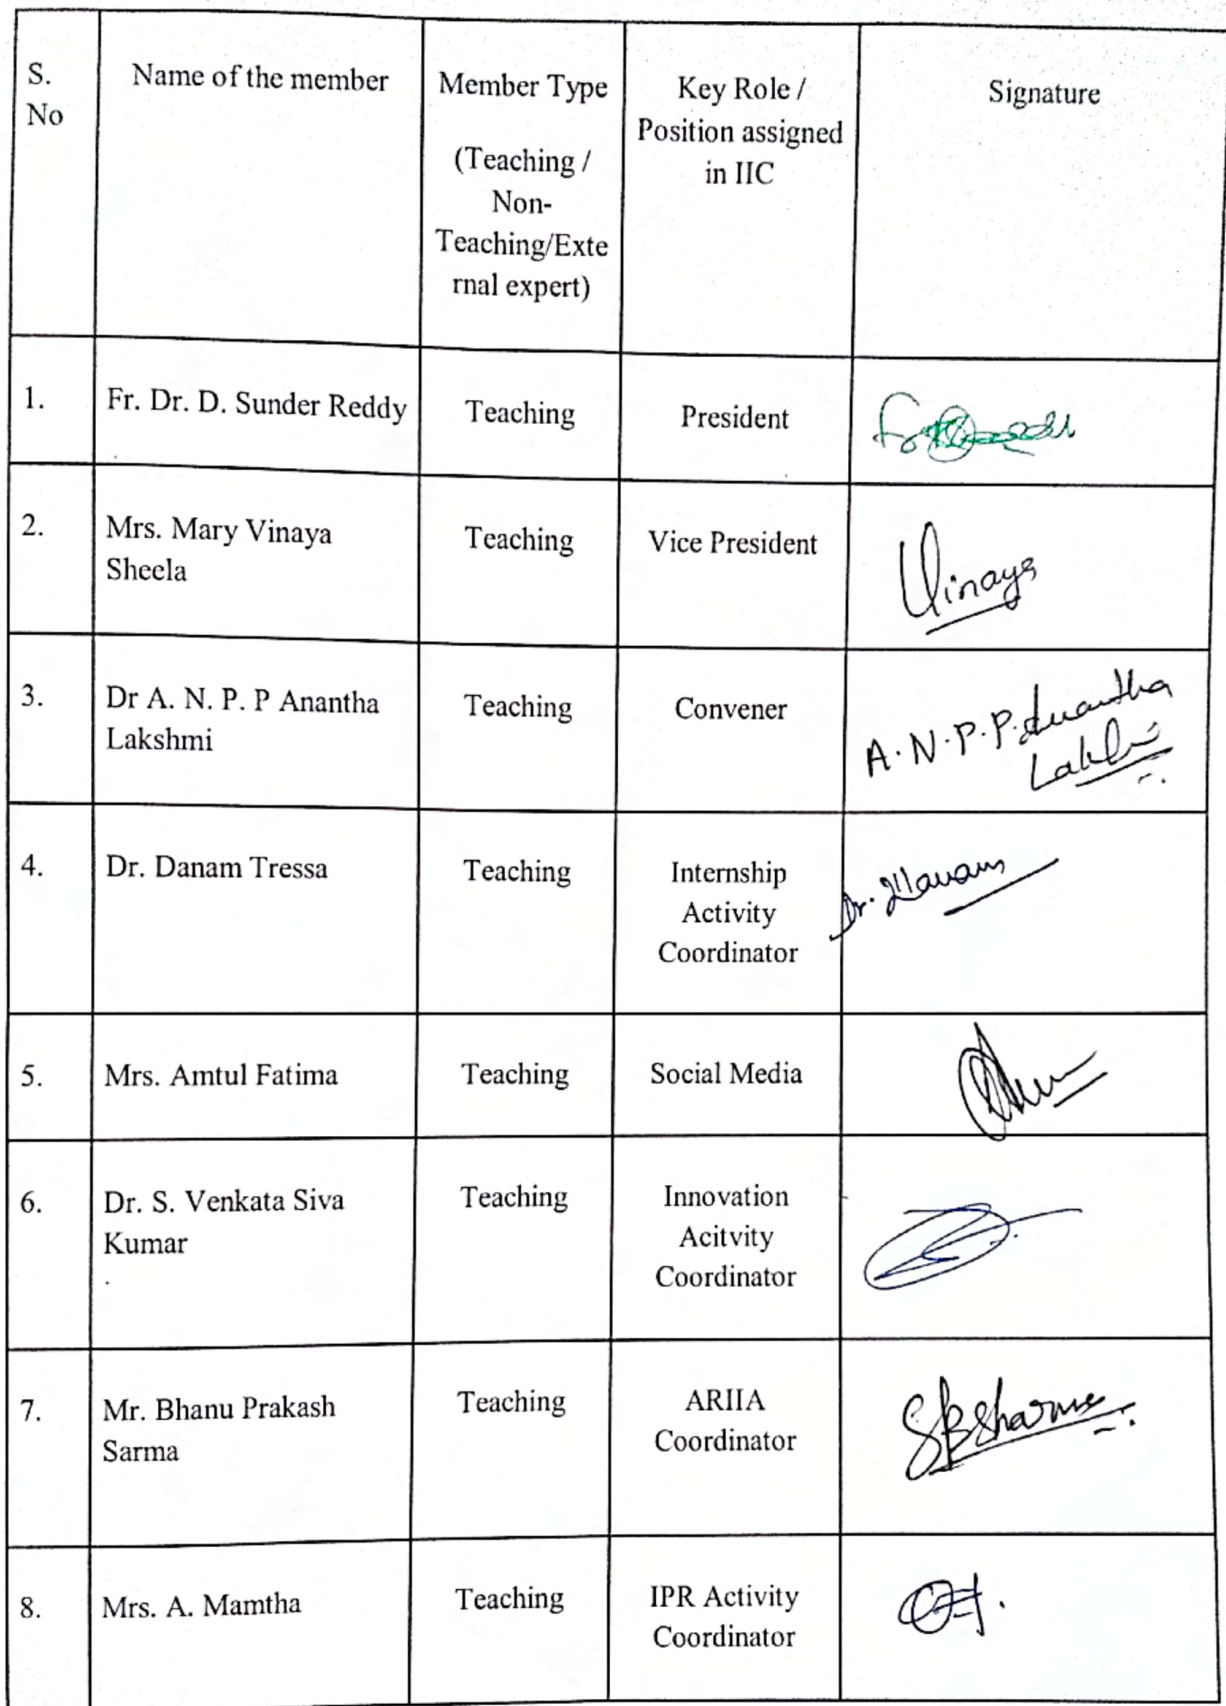 S. No
Name of the member
Member Type
(Teaching /
Non-
Teaching/Exte
rnal expert)
Key Role /
Position assigned
in IIC
Signature
1.
Fr. Dr. D. Sunder Reddy
Teaching
President
2.
Mrs. Mary Vinaya
Sheela
Teaching
Vice President
Vinaya
3.
Dr A. N. P. P Anantha
Lakshmi
Teaching
Convener
A.N.P.P. Anantha
4.
Dr. Danam Tressa
Teaching
Internship
Activity
Coordinator
Dr.
5.
Mrs. Amtul Fatima
Teaching
Social Media
6.
Dr. S. Venkata Siva
Kumar
Teaching
Innovation
Acitvity
Coordinator
7.
Mr. Bhanu Prakash
Sarma
Teaching
ARIIA
Coordinator
SBSharma
8.
Mrs. A. Mamtha
Teaching
IPR Activity
Coordinator